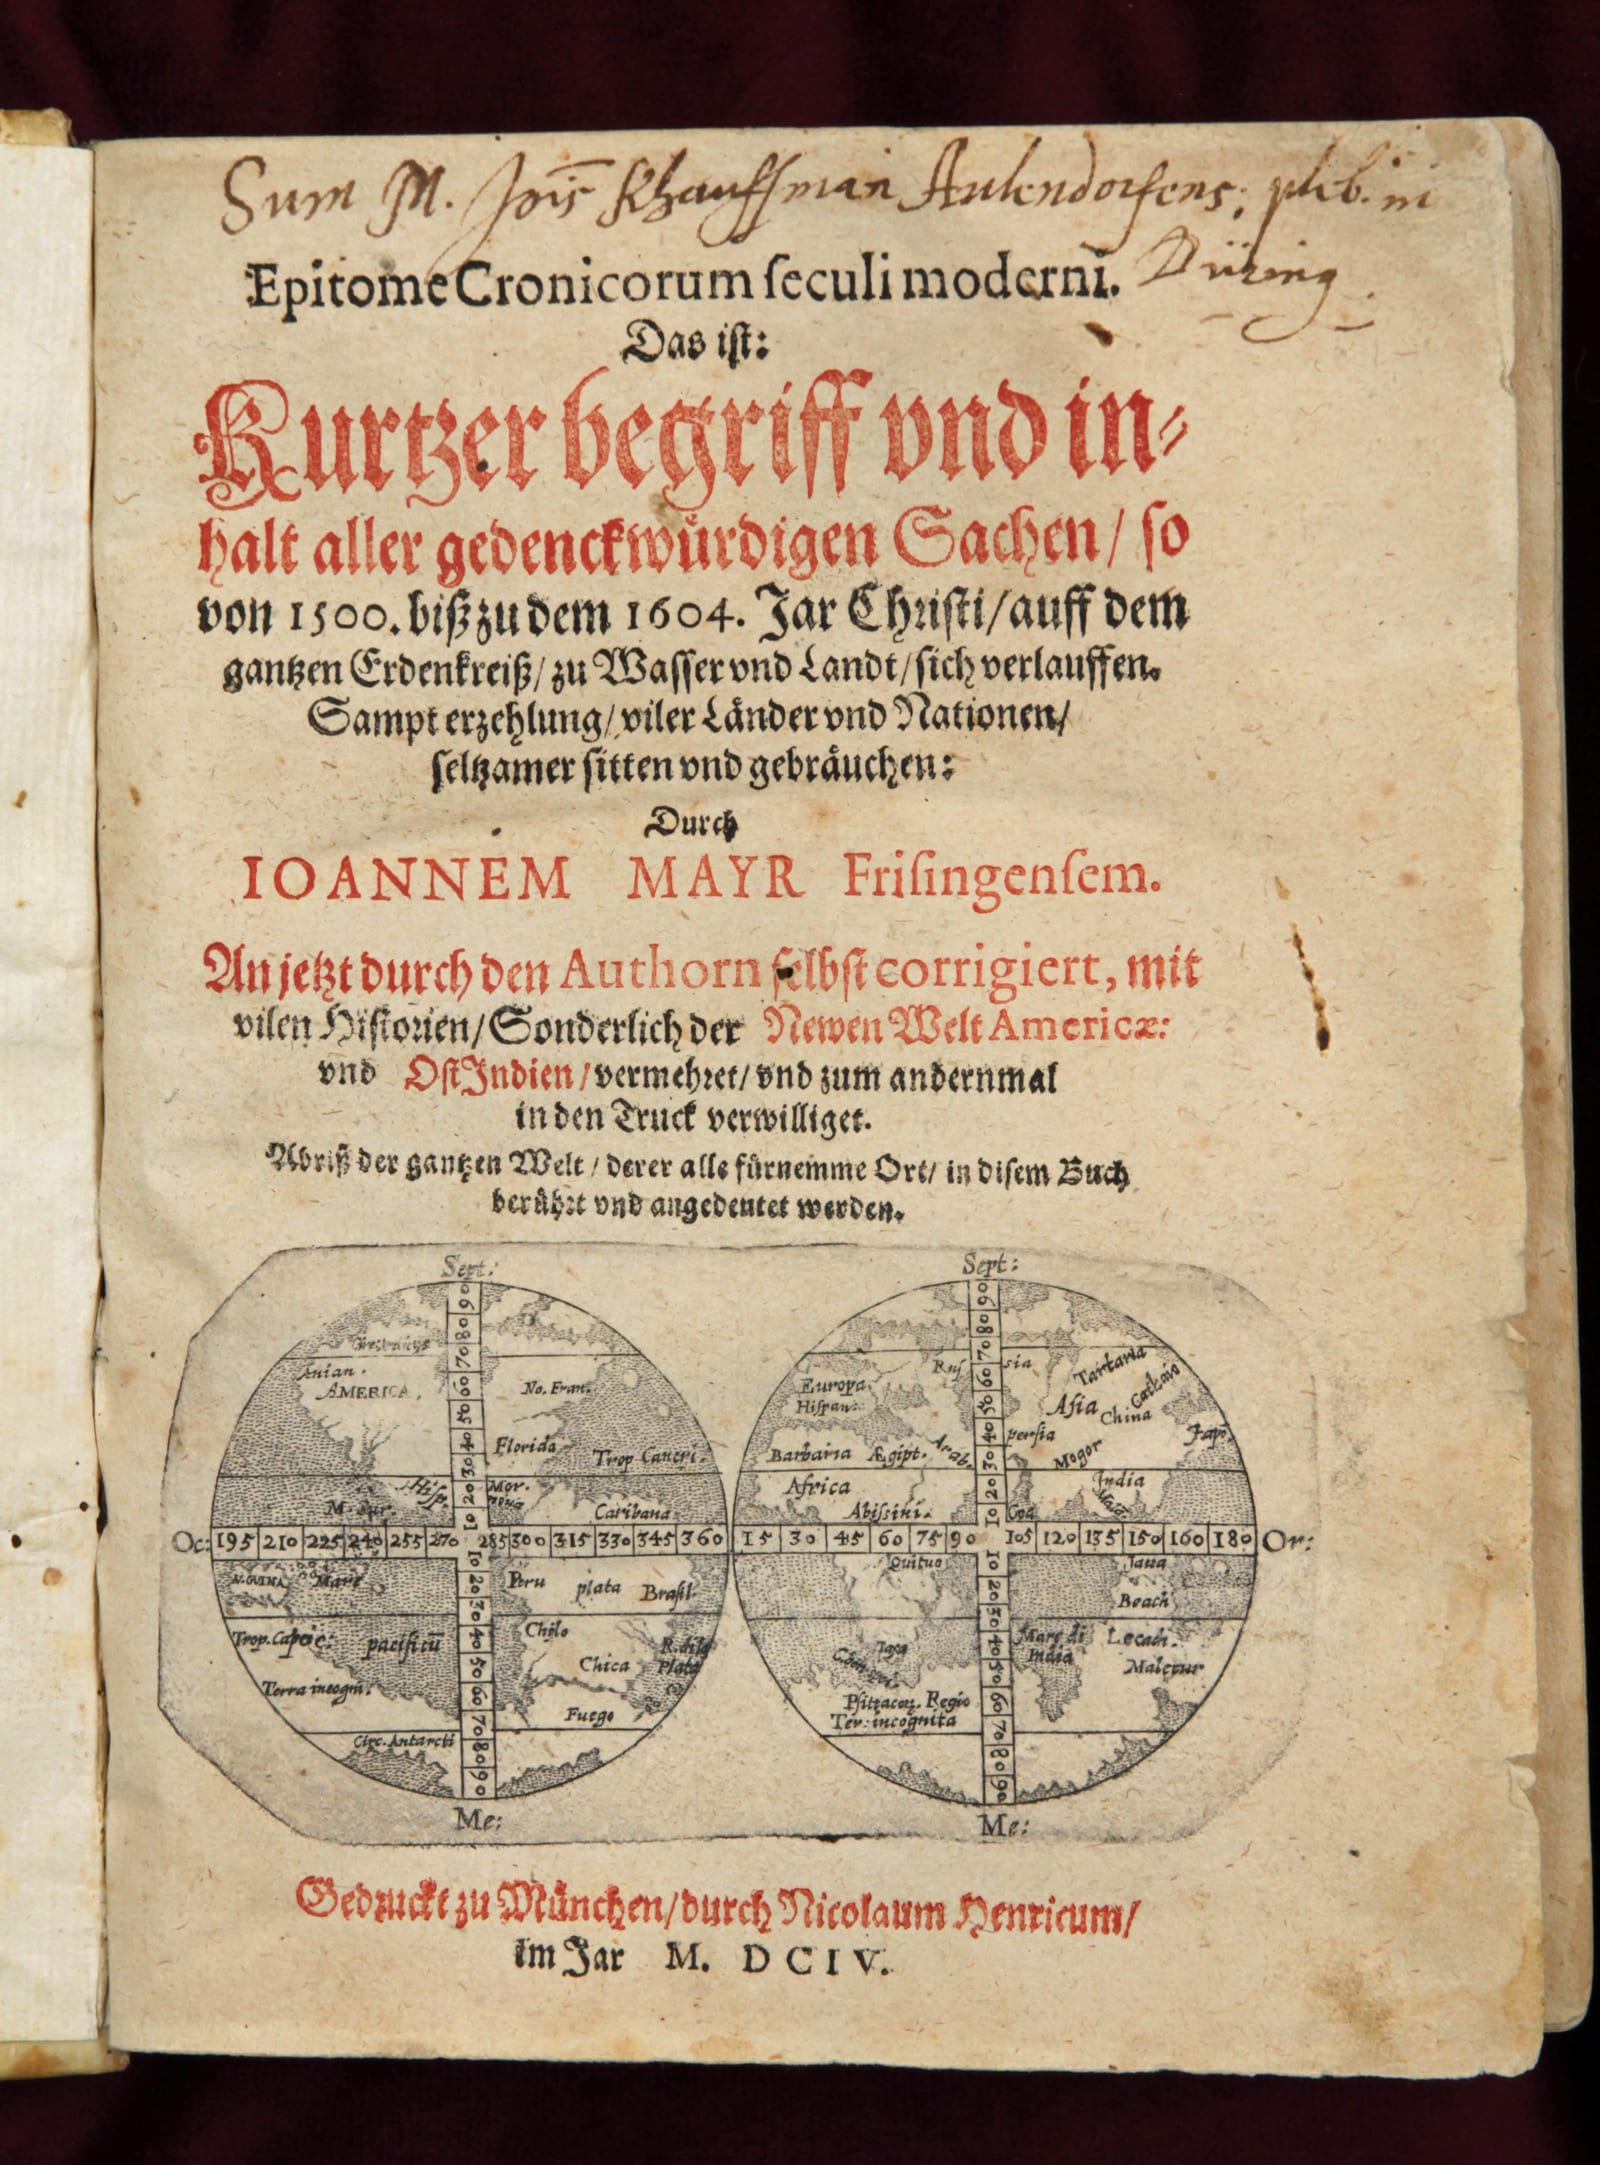 Sum M. Jois Khauffman Aulendorfens; pleb. in
Düring
Epitome Cronicorum ſeculi moderni.
Das iſt:
Kurtzer begriff vnd in⸗
halt aller gedenckwürdigen Sachen/ ſo
von 1500. biß zu dem 1604. Jar Chriſti/ auff dem
gantzen Erdenkreiß/ zu Waſſer vnd Landt/ ſich verlauffen.
Sampt erzehlung/ viler Länder vnd Nationen/
ſeltzamer ſitten vnd gebräuchen:
Durch
IOANNEM MAYR Friſingenſem.
An jetzt durch den Authorn ſelbſt corrigiert, mit
vilen Hiſtorien/ Sonderlich der Newen Welt Americæ:
vnd Oſt Indien/ vermehret/ vnd zum andernmal
in den Truck verwilliget.
Abriß der gantzen Welt/ derer alle fürnemme Ort/ in diſem Buch
berührt vnd angedeutet werden.
Sept: Sept:
90 80 70 60 50 40 30 20 10
90 80 70 60 50 40 30 20 10
Anian.
AMERICA.
No. Fran.
Florida
Trop Cancri.
Hiſp.
M. Sur.
Caribana
Ruſ sia
Europa
Hiſpan:
Tartaria
Cathaio
Aſia
China
Japo.
perſia
Mogor
Barbaria Ægipt. Arab.
Africa
India
Abiſsini.
Goa
Oc: 195 210 225 240 255 270 285 300 315 330 345 360 15 30 45 60 75 90 105 120 135 150 160 180 Or:
10 20 30 40 50 60 70 80 90
10 20 30 40 50 60 70 80 90
N. GVINA Mare
Peru plata Braſil
Trop. Capric: pacificũ
Chilo
R. dila
Plata
Chica
Terra incogni.
Fuego
Circ. Antarcti
Quituo
Iaua
Beach
Mare di
India
Lecach.
Maletur
Pſitacor. Regio
Ter: incognita
Me: Me:
Gedruckt zu München/ durch Nicolaum Henricum/
Im Jar M. DCIV.